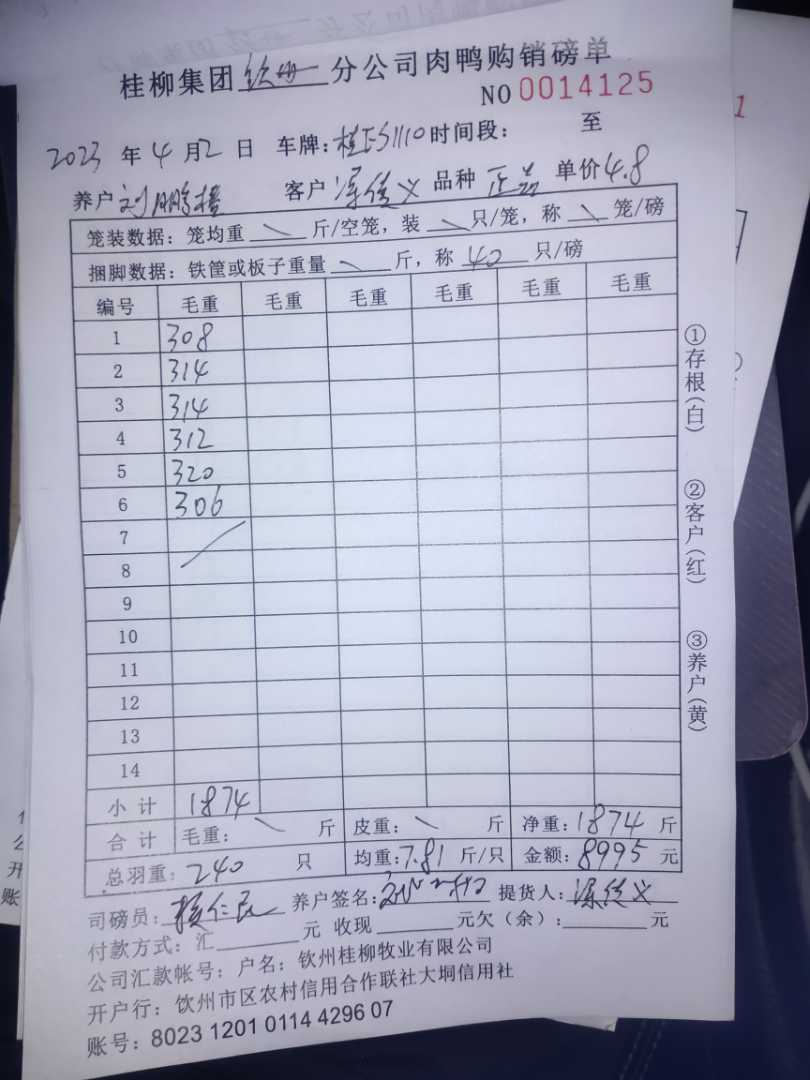 桂柳集团钦州分公司肉鸭购销磅单
NO 0014125
2023 年 4 月 2 日 车牌: 桂ES1110 时间段: 至
养户 刘鹏 客户 传义 品种 正品 单价 4.8
笼装数据: 笼均重 \ 斤/空笼, 装 \ 只/笼, 称 \ 笼/磅
捆脚数据: 铁筐或板子重量 \ 斤, 称 40 只/磅
编号 毛重 毛重 毛重 毛重 毛重 毛重
1 308
2 314
3 314
4 312
5 320
6 306
7
8
9
10
11
12
13
14
小计 1874
合计 毛重: \ 斤 皮重: \ 斤 净重: 1874 斤
总羽重: 240 只 均重: 7.81 斤/只 金额: 8995 元
司磅员: 仁民 养户签名: 提货人: 传义
付款方式: 汇 元 收现 元欠(余): 元
公司汇款帐号: 户名: 钦州桂柳牧业有限公司
开户行: 钦州市区农村信用合作联社大垌信用社
账号: 8023 1201 0114 4296 07
①存根(白)
②客户(红)
③养户(黄)
1
开
账